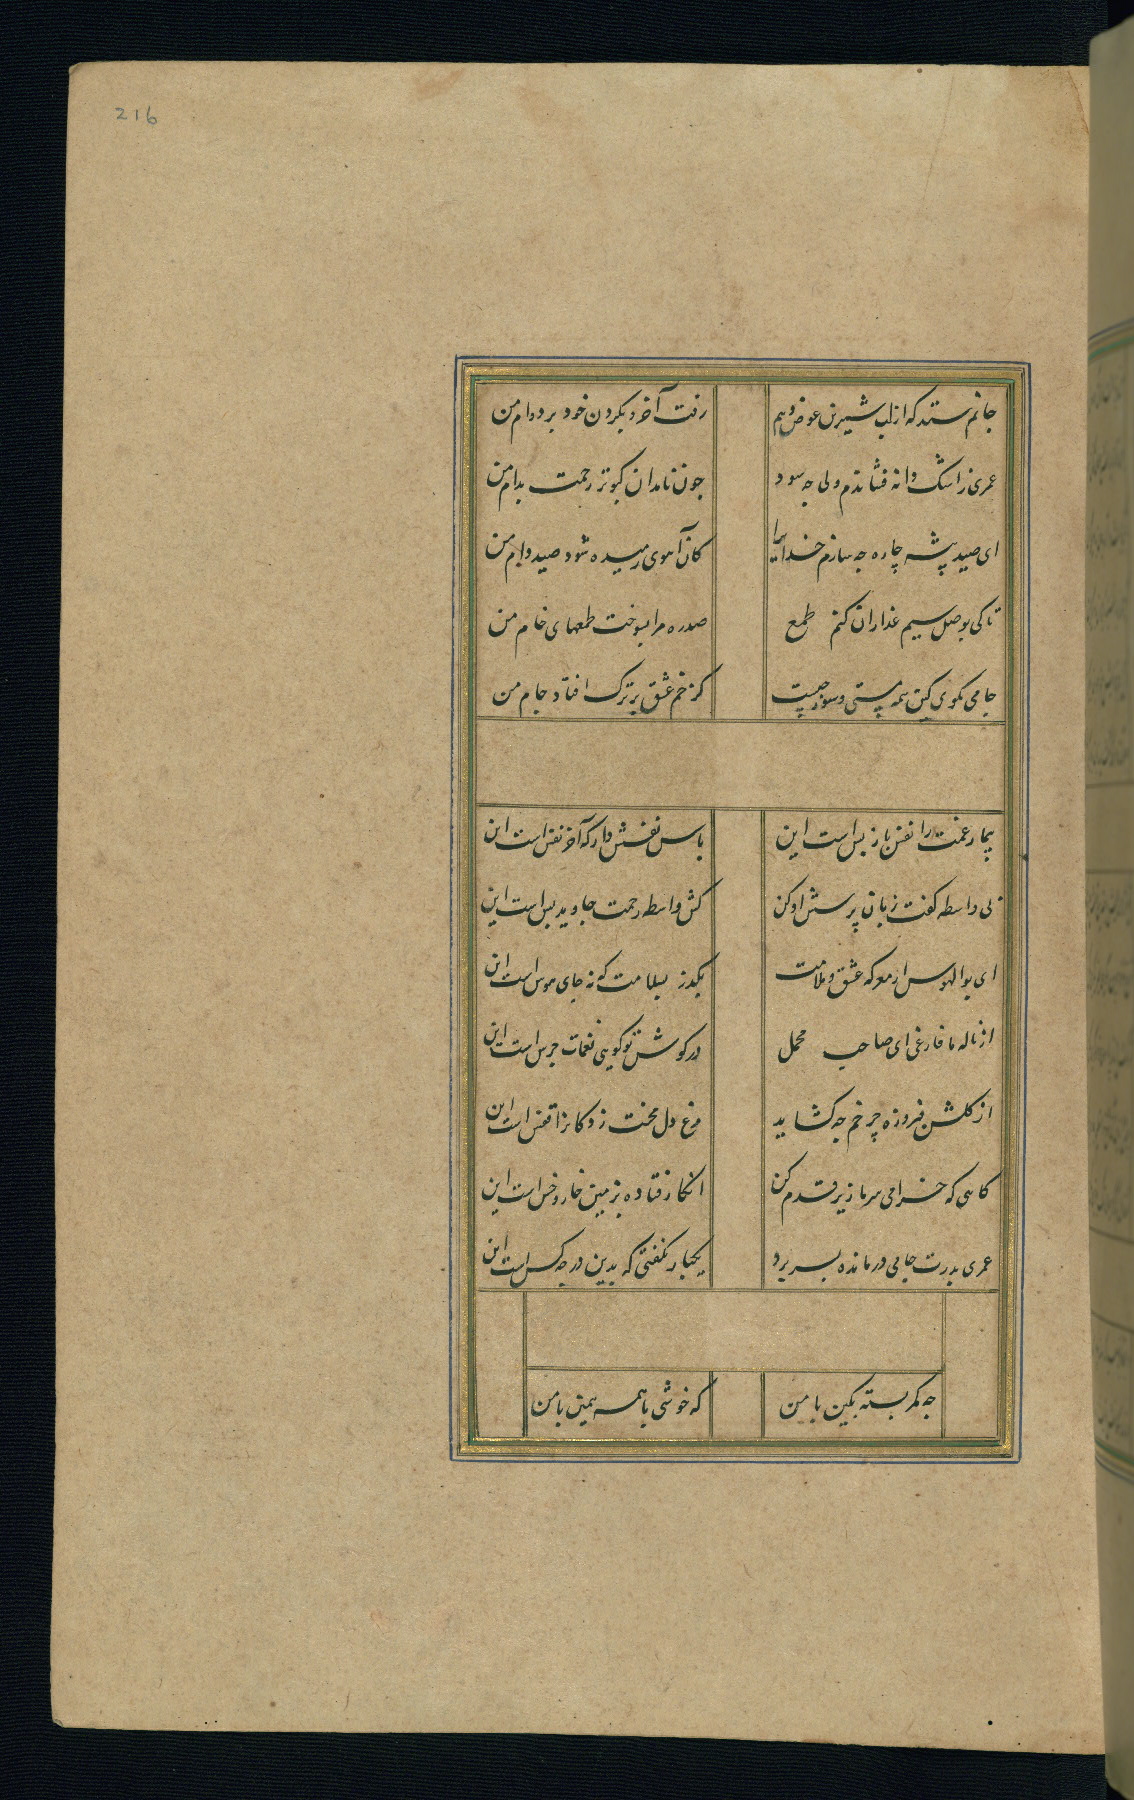 216
جانم ستد که از لب شیرین عوض دهم رفت آخر و بگردن خود برد وام من
عمری ز اشک دانه فشاندم ولی چه سود چون نامد آن کبوتر رحمت بدام من
ای صید پیشه چاره چه سازم خدایرا کان آهوی رمیده شود صید دام من
تا کی بوصل سیم عذاران کنم طمع صد ره مرا بسوخت طمعهای خام من
جامی مگوی کین همه مستی و سوز چیست کز خم عشق پرترک افتاد جام من
بیمار غمت را نفس باز پس است این پاس نفسش دار که آخر نفس است این
بی واسطه گفت زبان پرسش او کن کش واسطه رحمت جاوید بس است این
ای بوالهوس از معرکه عشق و ملامت بگذر بسلامت که نه جای هوس است این
از ناله ما فارغی ای صاحب محمل در گوش تو گویی نغمات جرس است این
از گلشن فیروزه چرخم چه گشاید مرغ دل محنت زدگان را قفس است این
گاهی که خرامی سر ما زیر قدم کن انگار فتاده بزمین خار و خس است این
عمری بدرت جامی درمانده بسر برد یکبار نگفتی که بدین در چه کس است این
چه کمر بسته بکین با من که خوشی با همه همین با من